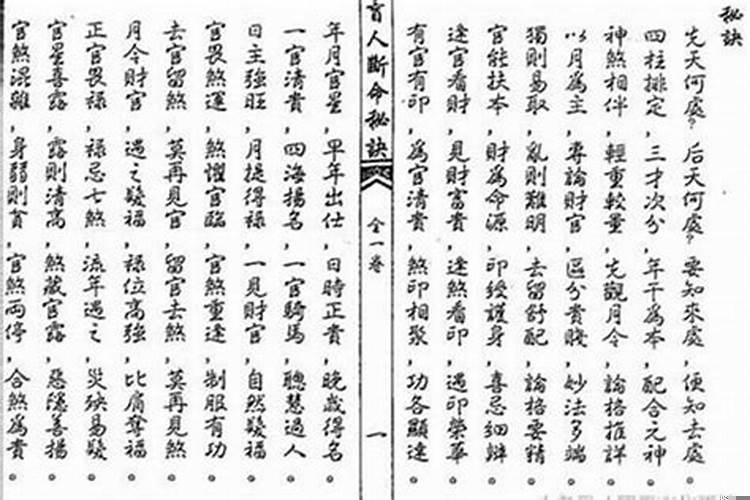 秘訣
先天何處?后天何處?要知來處,便知去處。
四柱排定,三才次分,年干為本,配合元神。
神煞相伴,輕重較量,先觀月令,論格推詳。
以月為主,專論財官,區分貴賤,妙法多端。
獨則易取,亂則難明,去留舒配,論格要精。
官能扶本,財為命源,印綬護身,喜忌細辨。
逢官看財,見財富貴,逢煞看印,遇印榮華。
有官有印,為官清貴,煞印相聚,功各顯達。
盲人斷命秘訣 全一卷 一
年月官星,早年出仕,日時正貴,晚歲得名。
一官清貴,四海揚名,一官騎馬,聰慧過人。
日主強旺,月提得祿,一見財官,自然髮福。
官畏煞運,煞懼官臨,官煞重逢,制服有功。
去官留煞,莫再見官,留官去煞,莫再見煞。
月令財官,遇之髮福,祿位高強,比肩奪福。
正官畏祿,祿忌七煞,流年遇之,災殃易髮。
官星喜露,露則清高,煞藏官露,惡隱善揚。
官煞混雜,身弱則貧,官煞兩停,合煞為貴。